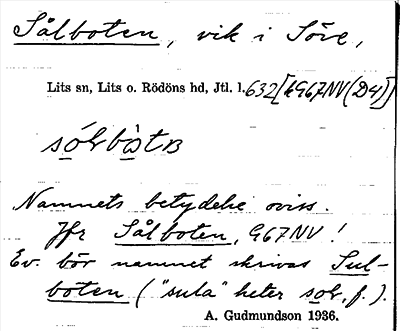 Sålboten, vik i Söre,
Lits sn, Lits o. Rödöns hd, Jtl. l. 632 [k G67NV (D4)]
Namnets betydelse oviss.
Jfr Sålboten, G67NV !
Ev. bör namnet skrivas Sul-
boten ("sula" heter sol, f.).
A. Gudmundson 1936.